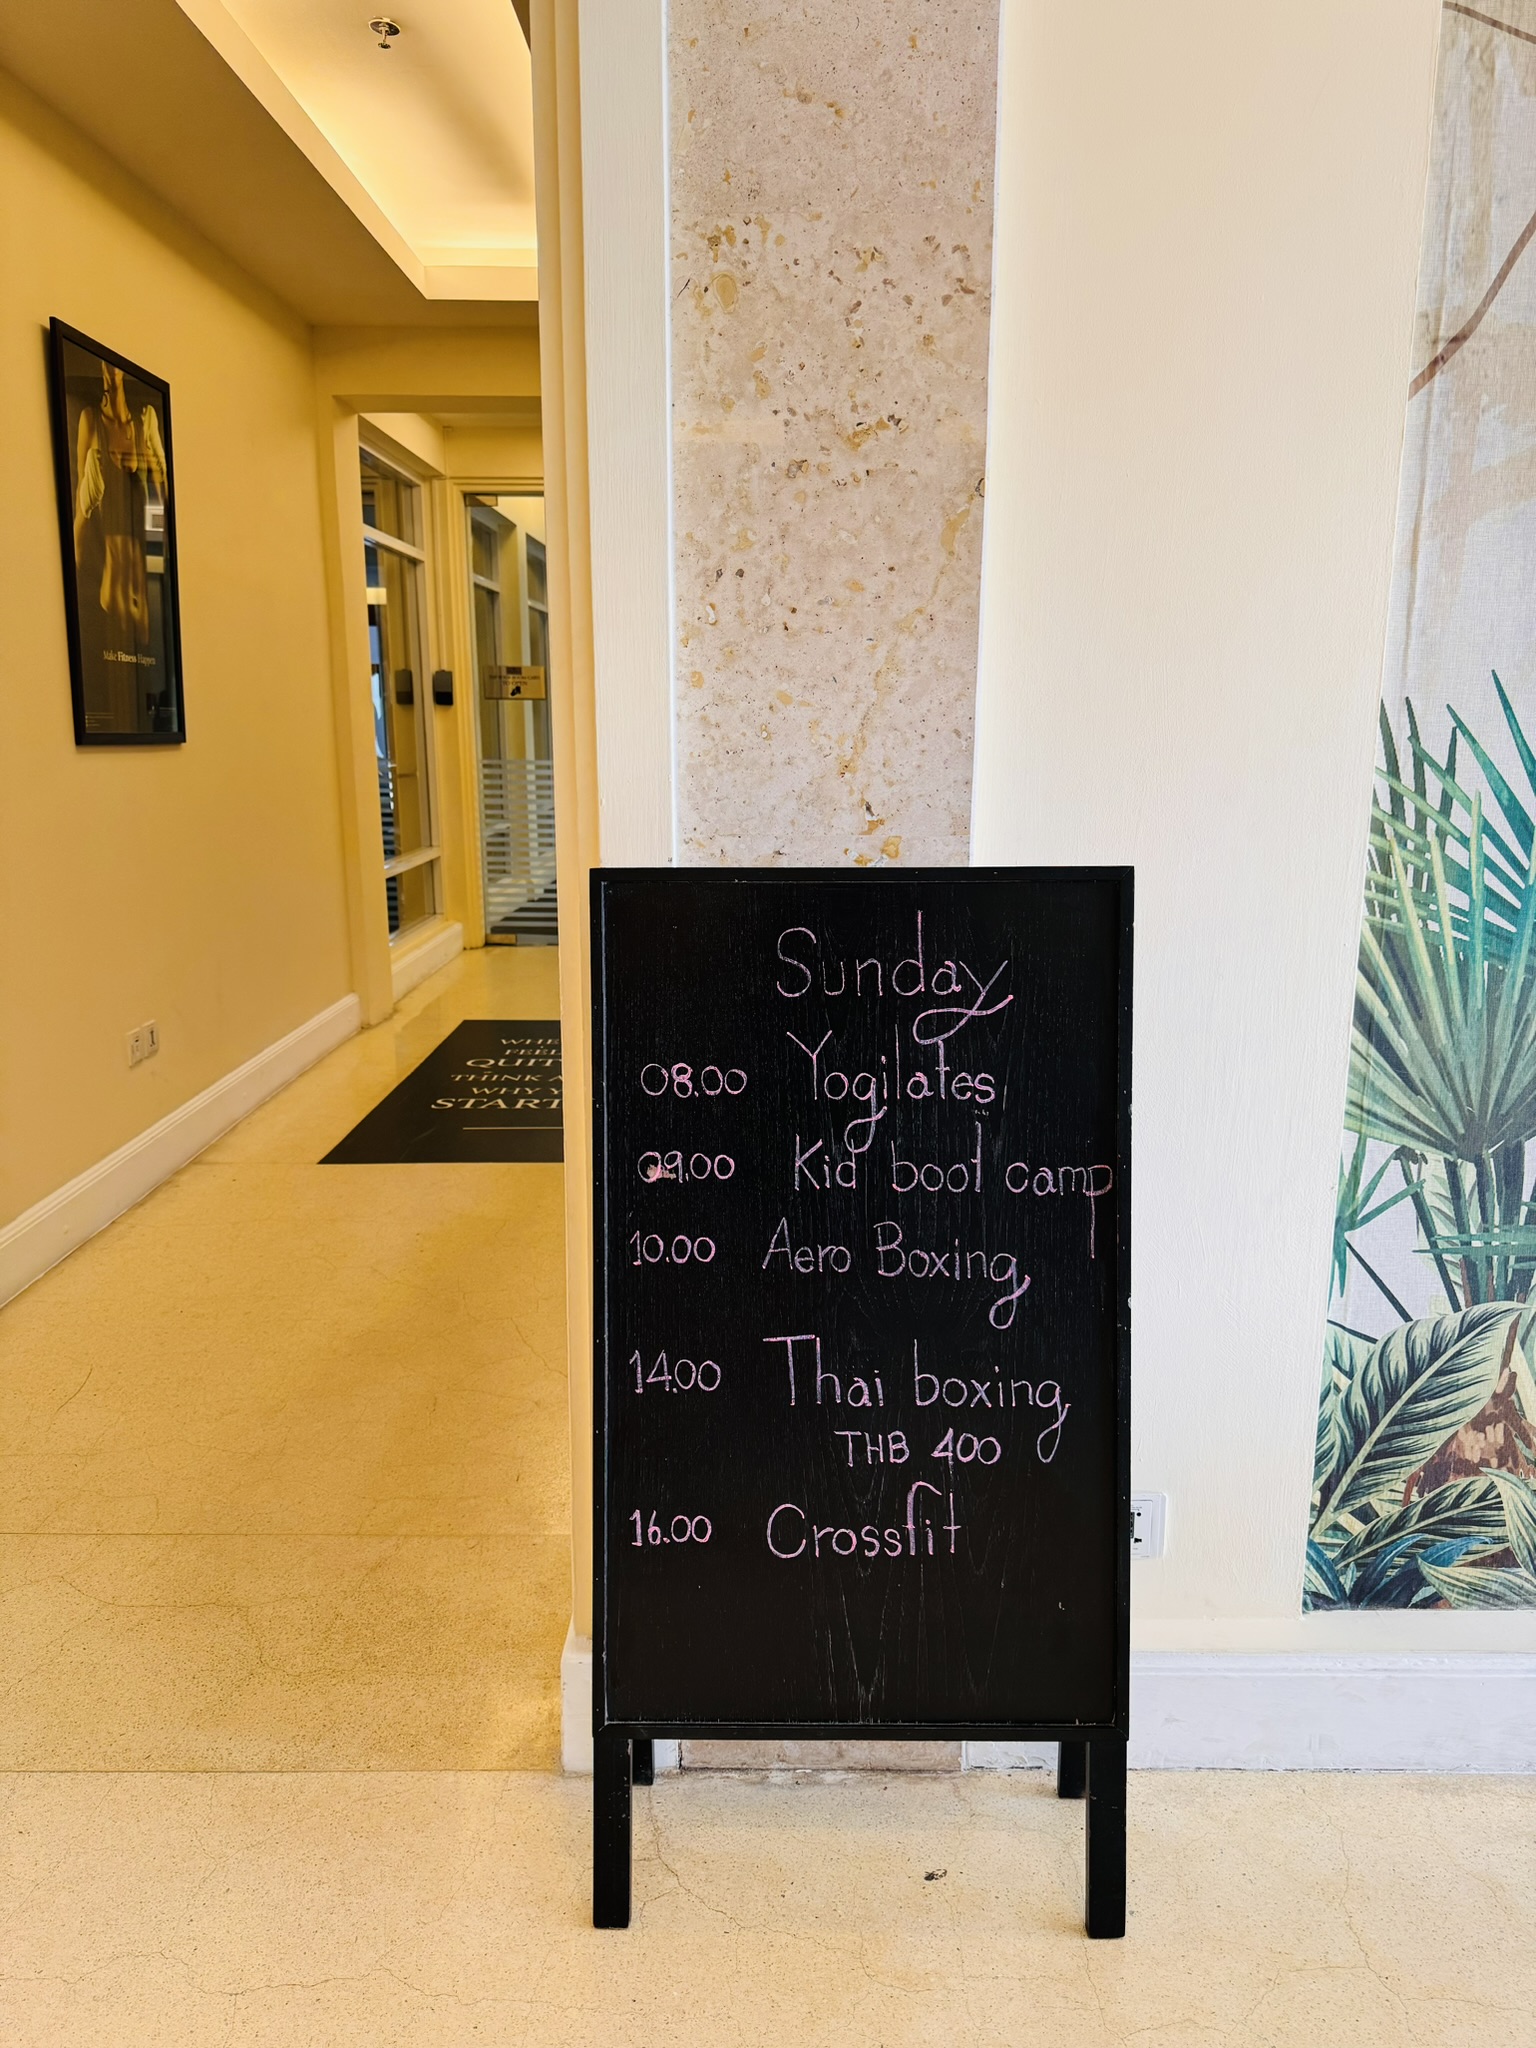 Sunday
08.00 Yogilates
09.00 Kid boot camp
10.00 Aero Boxing
14.00 Thai boxing
THB 400
16.00 Crossfit
Make Fitness Happen
WHE
FEEL
QUIT
THINK A
WHY Y
START
TO OPEN